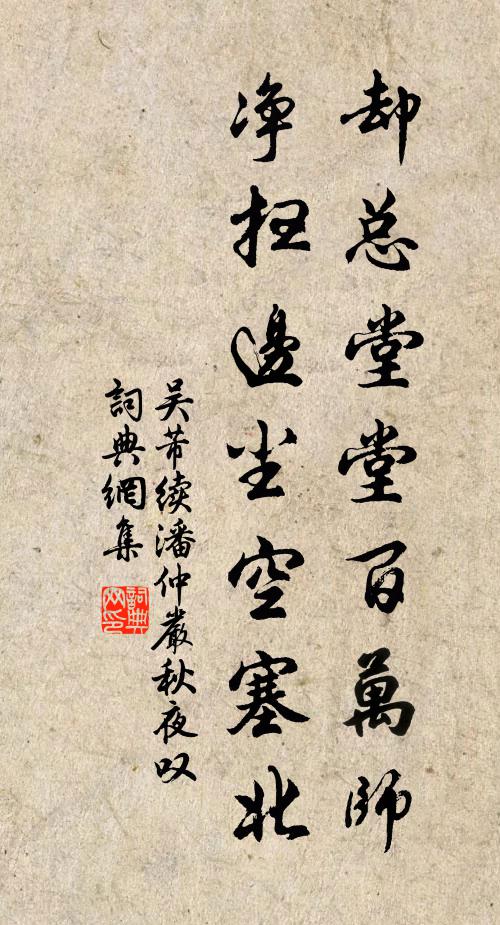 却总堂堂百萬師
净扫邊尘空塞北
吴芾续潘仲嚴秋夜叹
詞典網集
詞典网印